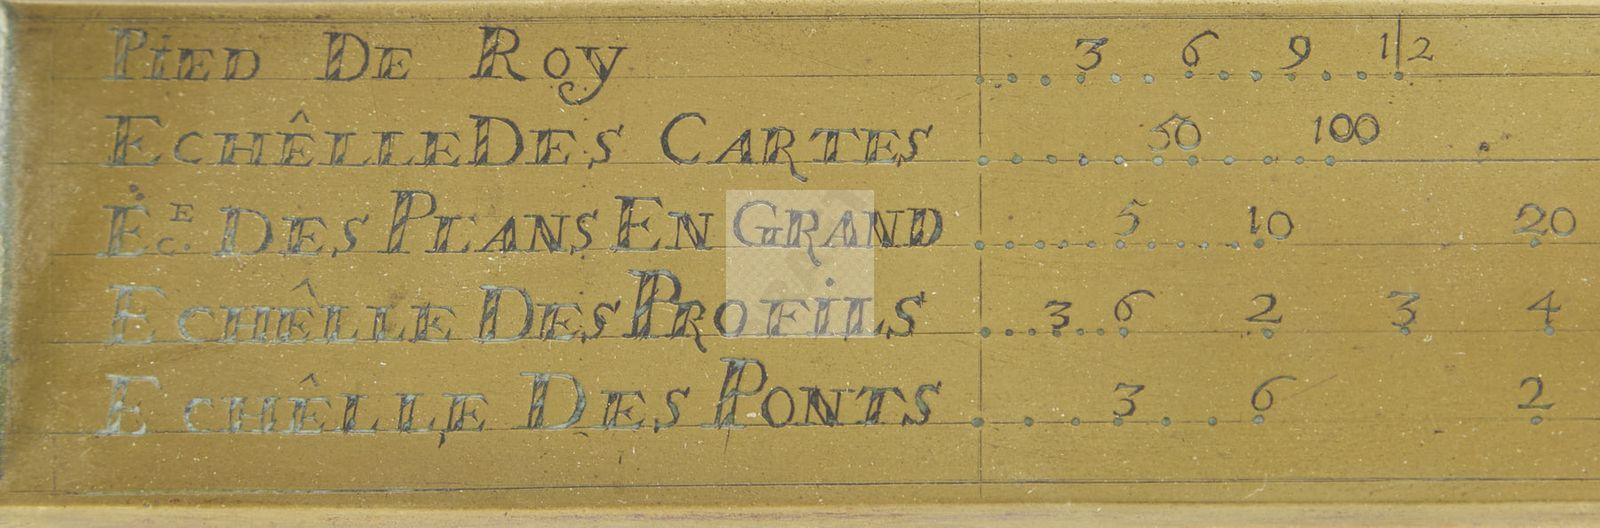 PiED DE Roy 3 6 9 1|2
ECHÊLLE DES CARTES 50 100
EᴱC. DES PLANS EN GRAND 5 10 20
ECHÊLLE DES PROFiLS 3 6 2 3 4
ECHÊLLE DES PONTS 3 6 2